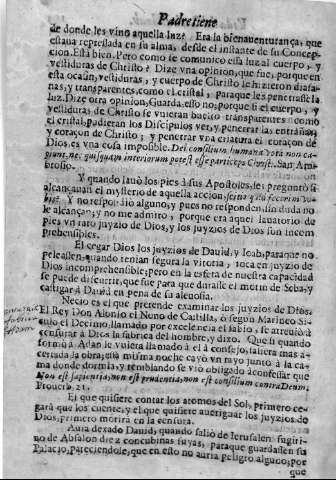 Padre tiene
de donde les vino aquella luz? Era la bienauenturança, que
estaua represada en su alma, desde el instante de su Concep-
cion. Està bien. Pero como se comunicò essa luz al cuerpo, y
vestiduras de Christo? Dize vna opinion, que fue, porque en
esta ocasiõ, vestiduras, y cuerpo de Christo se hizieron diafa-
nas, y transparentes, como el cristal, paraque les penetrasse la
luz. Dize otra opinion, Guarda: esso no; porque si el cuerpo, y
vestiduras de Christo se vuieran buelto transparentes como
el cristal, pudieran los Discipulos ver, y penetrar las entrañas,
y coraçon de Christo; y penetrar vna criatura el coraçon de
Dios, es vna cosa impossible. Dei consilium humana vota non ca-
piunt, nec quisquam interiorum potest esse particeps Christi. San Am-
brosio.
Y quando lauò los pies à sus Apostoles, les preguntò si
alcançauan el mysterio de aquella accion, scitis quid fecerim vo-
bis? Y no respondiò alguno, y pues no responden, sin duda no
le alcançan; y no me admiro, porque era aquel lauatorio de
pies vn raro juyzio de Dios, y los juyzios de Dios son incom
prehensibles.
El cegar Dios los juyzios de Dauid, y Ioab, paraque no
peleassen, quando tenian segura la vitoria, toca en juyzio de
Dios incomprehensible; pero en la esfera de nuestra capacidad
se puede discurrir, que fue para que durasse el motin de Seba, y
castigar à Dauid en pena de su aleuosia.
Necio es el que pretende examinar los juyzios de Dios.
El Rey Don Alonso el Nono de Castilla, ò segun Marineo Si-
culo el Decimo, llamado por excelencia el sabio, se atreuiò à
censurar à Dios la fabrica del hombre, y dixo. Que si quando
formò à Adan le vuiera llamado à èl à consejo, saliera mas a-
certada la obra; essa misma noche cayò vn rayo junto à la ca-
ma donde dormia, y temblando se viò obligado à confessar que
Non est sapientia, non est prudentia, non est consilium contra Deum.
Prouerb. 21.
El que quisiere contar los atomos del Sol, primero ce-
garà que los cuente, y el que quisiere aueriguar los juyzios de
Dios, primero morirà en la censura.
Auia dexado Dauid, quando saliò de Ierusalen fugiti-
no de Absalon diez concubinas suyas, paraque guardassen su
Palacio, pareciendole, que en esto no auria peligro alguno; por
que